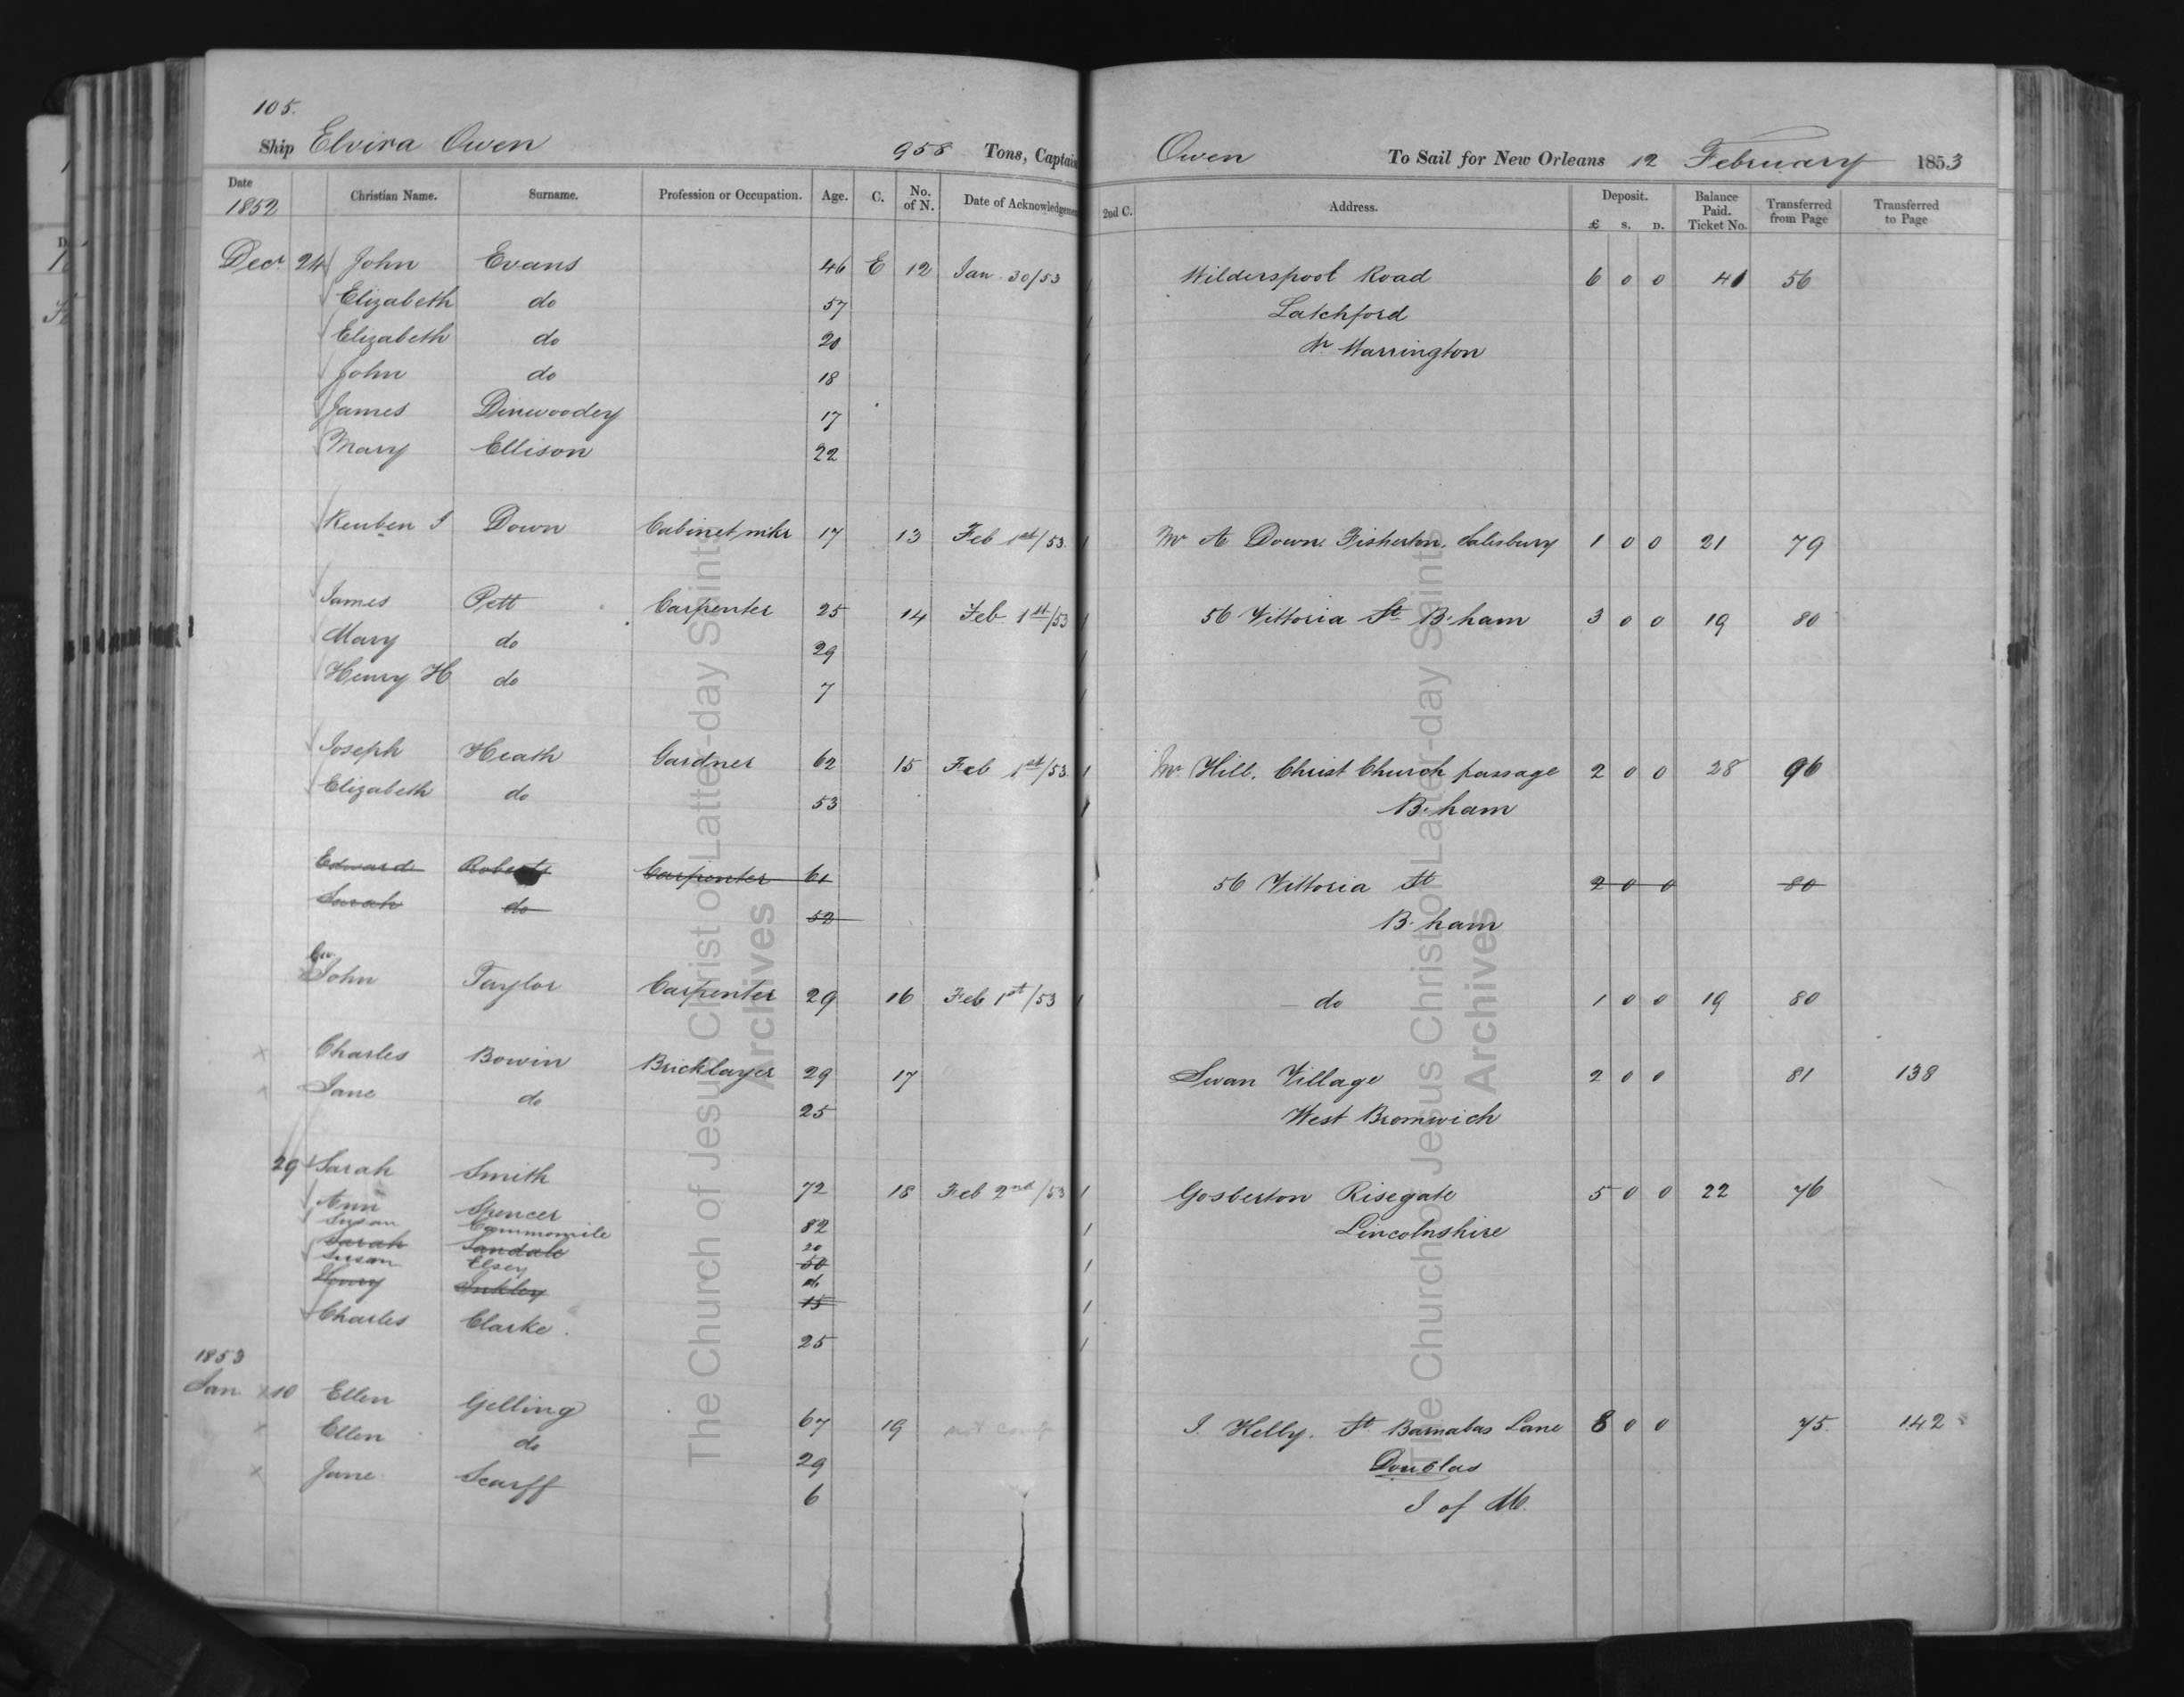 105.
Ship Elvira Owen 958 Tons, Captain Owen To Sail for New Orleans 12 February 1853
Date 1852 Christian Name. Surname. Profession or Occupation. Age. C. No. of N. Date of Acknowledgement 2nd C. Address. Deposit. £ s. D. Balance Paid. Ticket No. Transferred from Page Transferred to Page
Decr 24 John Evans 46 E 12 Jan 30/53 Wilderspool Road 6 0 0 41 56
Elizabeth do 57 Latchford
Elizabeth do 20 Nr Warrington
John do 18
James Dinwoodey 17
Mary Ellison 22
Reuben J Down Cabinet mkr 17 13 Feb 1st/53 Mr A Down. Fisherton. Salisbury 1 0 0 21 79
James Pett Carpenter 25 14 Feb 1st/53 56 Vittoria St B.ham 3 0 0 19 80
Mary do 29
Henry H do 7
Joseph Heath Gardner 62 15 Feb 1st/53 Mr Hill. Christ Church passage 2 0 0 28 96
Elizabeth do 53 B.ham
Edward Roberts Carpenter 61 56 Vittoria St 2 0 0 80
Sarah do 52 B.ham
Geo.
John Taylor Carpenter 29 16 Feb 1st/53 do 1 0 0 19 80
Charles Bowin Bricklayer 29 17 Swan Village 2 0 0 81 138
Jane do 25 West Bromwich
29 Sarah Smith 72 18 Feb 2nd/53 Gosberton Risegate 5 0 0 22 76
Ann Spencer 82 Lincolnshire
Susan Cammomile 20
Sarah Sandale 50
Susan Elsey
Henry Inkley 15
Charles Clarke. 25
1853
Jan 10 Ellen Gelling 67 19 J. Kelly. St. Barnabas Lane 8 0 0 75 142
Ellen do 29 Douglas
Jane Scarff 6 I of M.
The Church of Jesus Christ of Latter-day Saints
Archives
The Church of Jesus Christ of Latter-day Saints
Archives